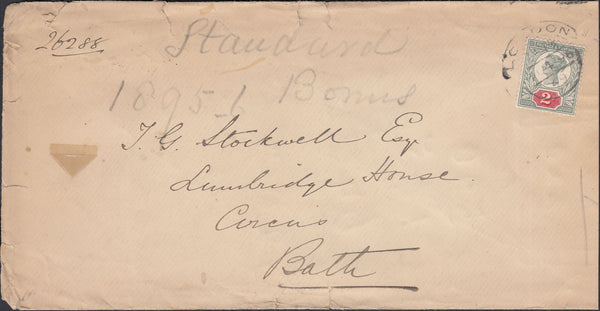 26288
Standard
1895-6 Bonus
LONDON
2
T. G. Stockwell Esq
Lumbridge House
Circus
Bath